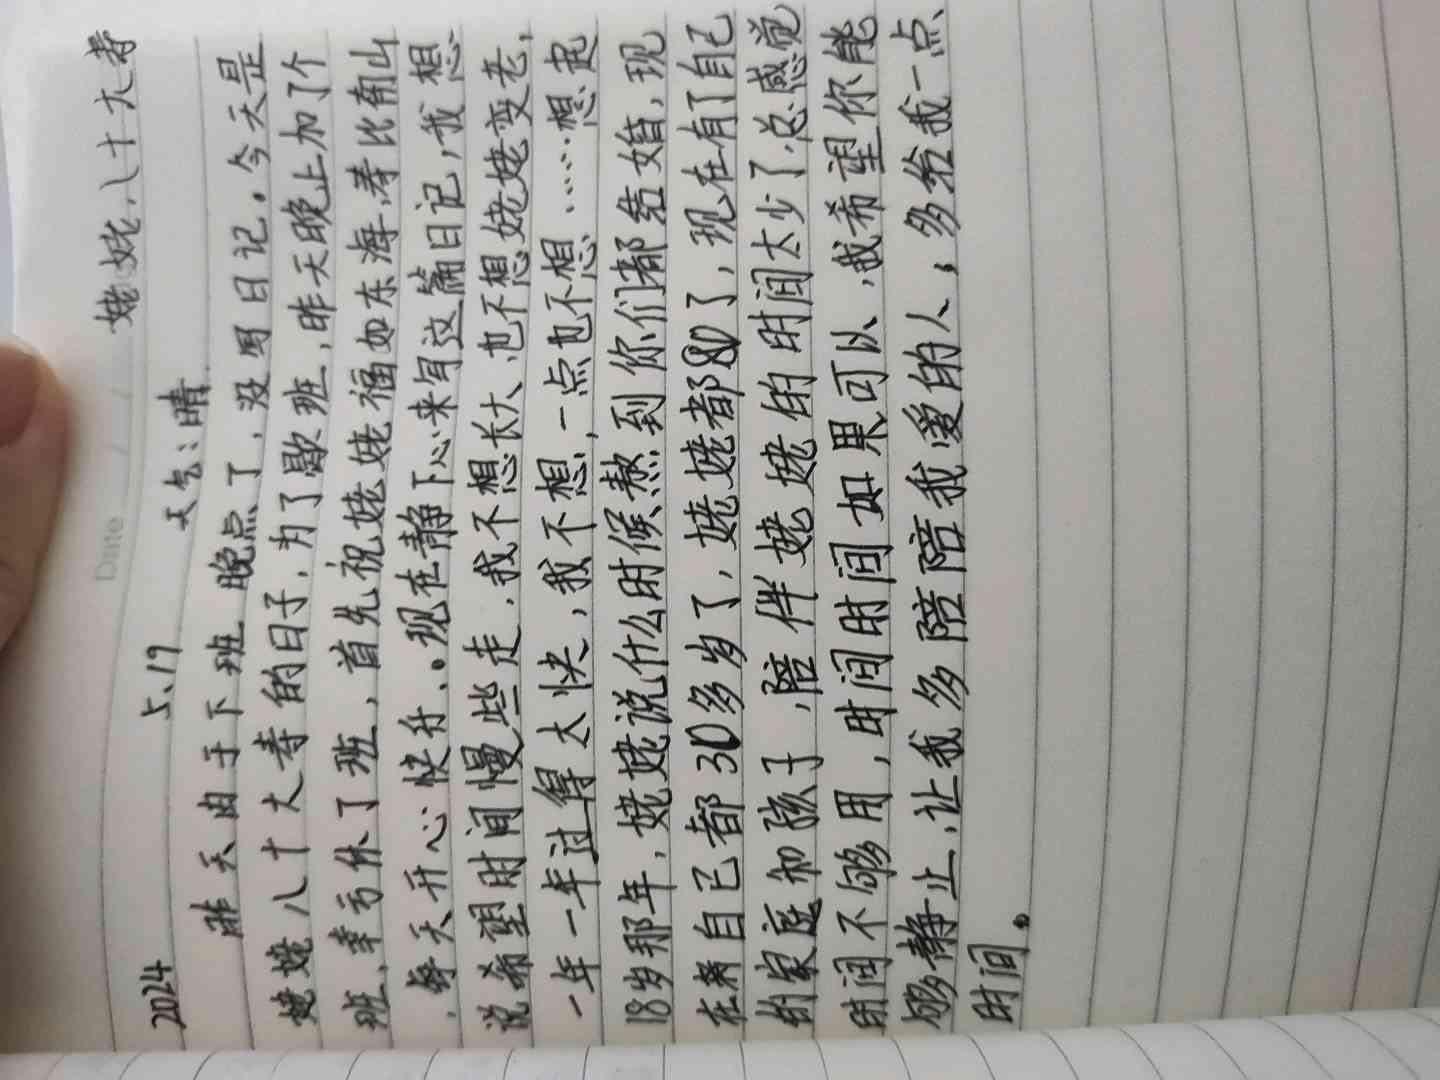 姥姥八十大寿
Date
2024 5.19 天气:晴
昨天由于下班晚点了,没写日记。今天是
姥姥八十大寿的日子,为了歇班,昨天晚上加了个
班,幸亏休了班,首先祝姥姥福如东海,寿比南山
,每天开心快乐。现在静下心来写这篇日记,我想
说希望时间慢些走,我不想长大,也不想姥姥变老,
一年一年过得太快,我不想,一点也不想……想起
18岁那年,姥姥说什么时候熬到你们都结婚,现
在自己都30多岁了,姥姥都80了,现在有了自己
的家庭和孩子,陪伴姥姥的时间太少了.总感觉
时间不够用,时间时间如果可以,我希望你能
够静止,让我多陪陪我爱的人,多给我一点
时间。